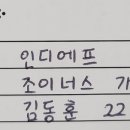 인디에프
조이너스 가
김동훈 22